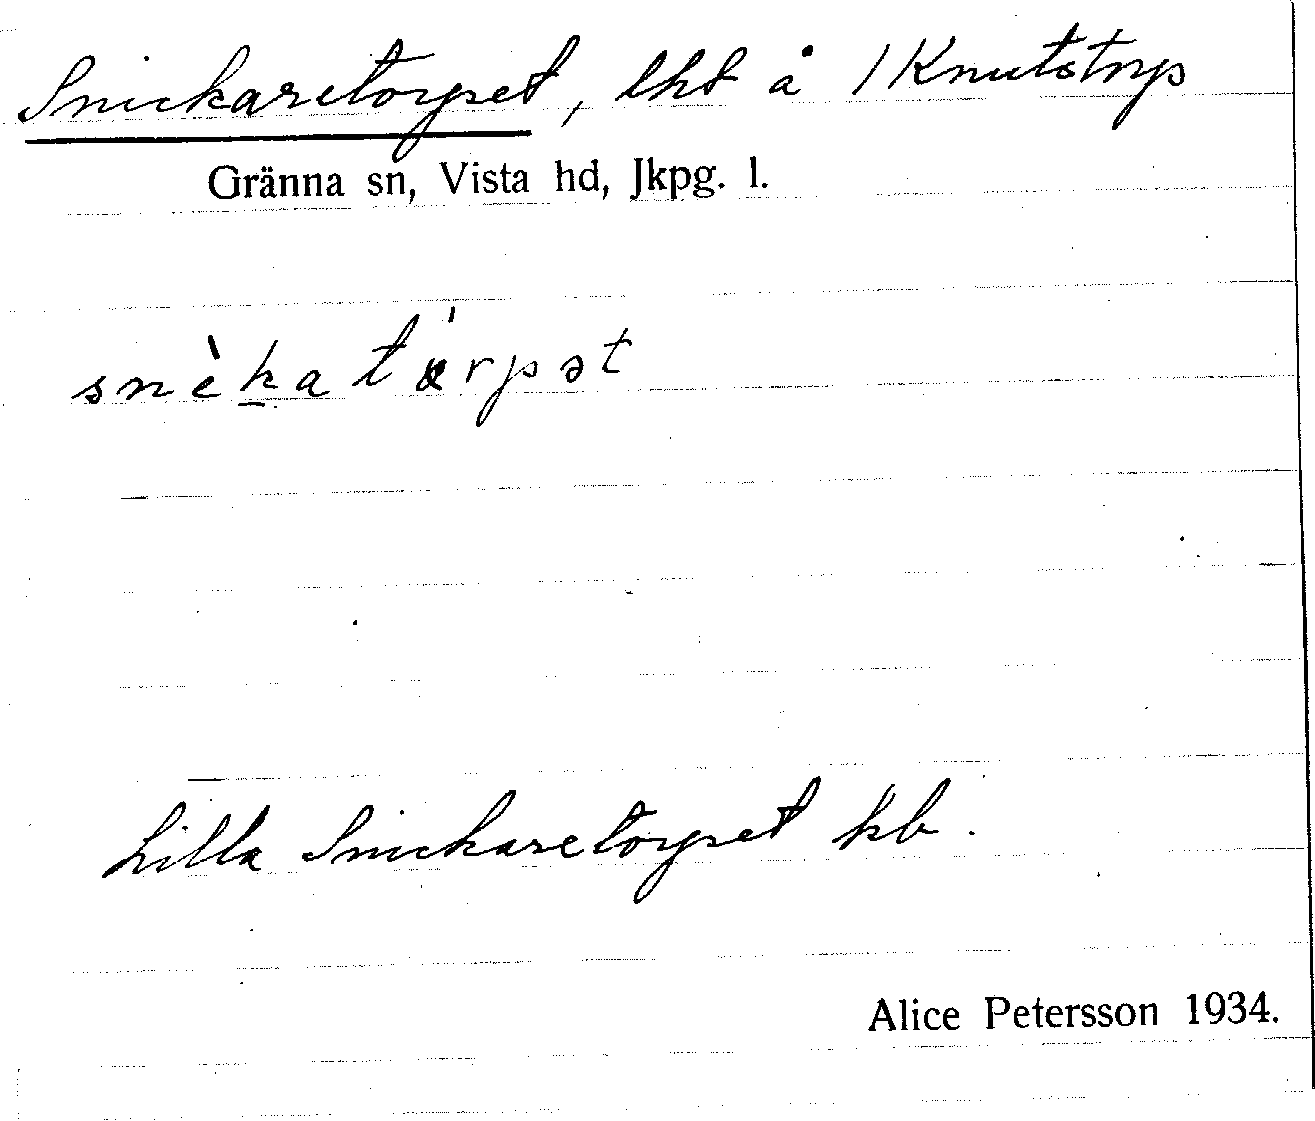 Snickaretorpet, lht å 1 Knutstorp
Gränna sn, Vista hd, Jkpg. l.
snèka tórpət
Lilla Snickaretorpet kb.
Alice Petersson 1934.